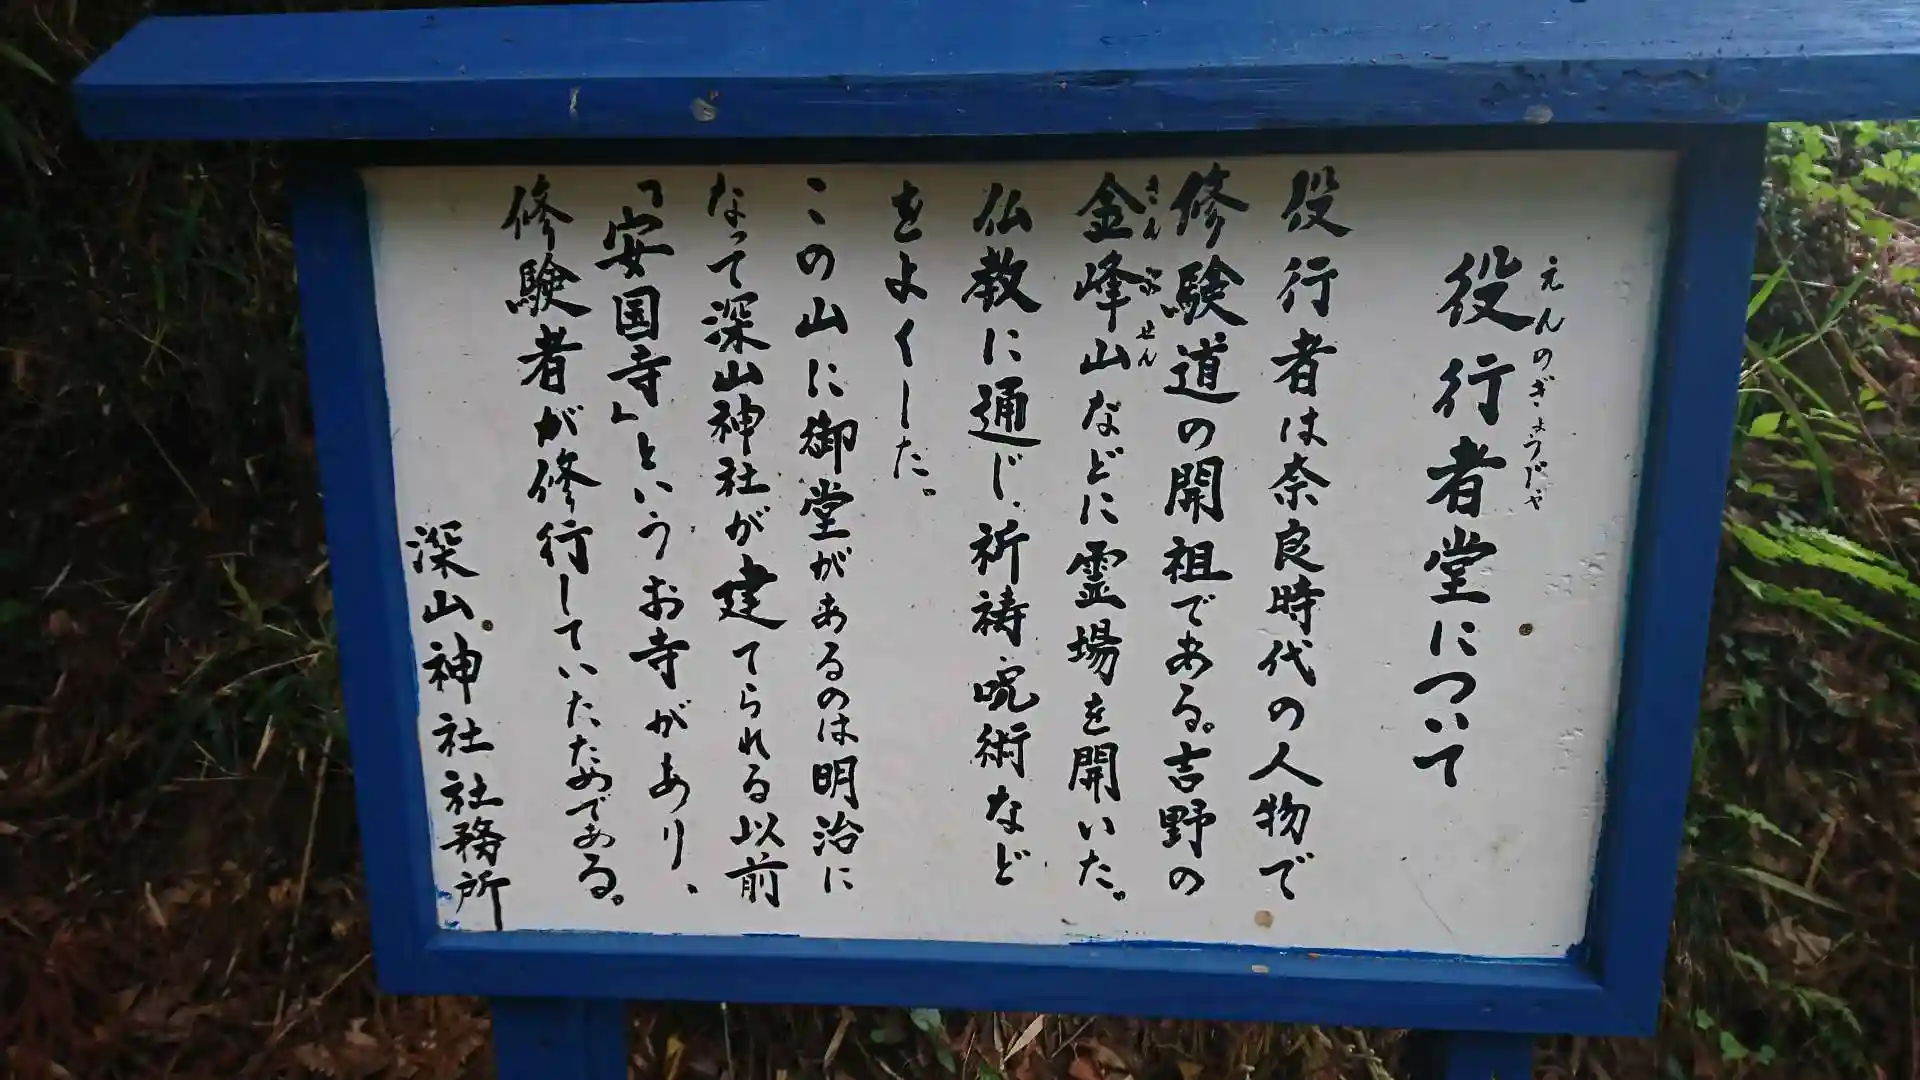 役行者堂について
えんのぎょうじゃ
役行者は奈良時代の人物で
修験道の開祖である。吉野の
金峰山などに霊場を開いた。
きんぷせん
仏教に通じ、祈祷呪術など
をよくした。
この山に御堂があるのは明治に
なって深山神社が建てられる以前
「安国寺」というお寺があり、
修験者が修行していたためである。
深山神社社務所